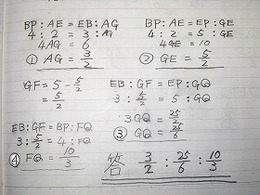 BP:AE=EB:AG
4:2=3:AG
4AG=6
① AG=3/2
BP:AE=EP:GE
4:2=5:GE
4GE=10
② GE=5/2
GF=5-5/2
=5/2
EB:GF=EP:GQ
3:5/2=5:GQ
3GQ=25/2
③ GQ=25/6
EB:GF=BP:FQ
3:5/2=4:FQ
④ FQ=10/3
答 3/2:25/6:10/3